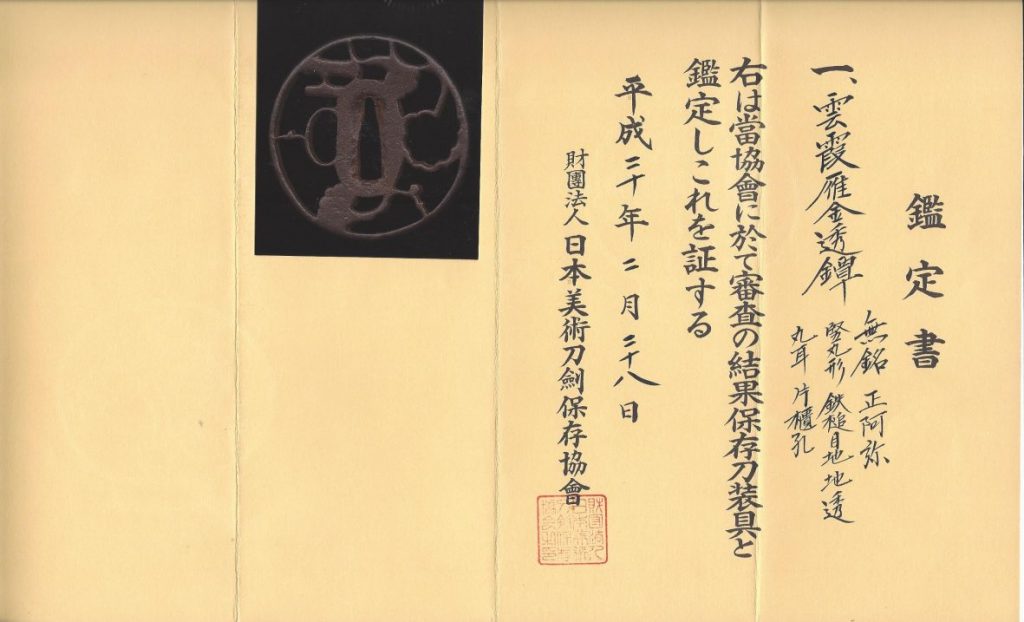 鑑定書
一、雲霞雁金透鐔
無銘 正阿弥
竪丸形 鉄槌目地 地透
丸耳 片櫃孔
右は當協會に於て審査の結果保存刀装具と
鑑定しこれを証する
平成二十年二月二十八日
財團法人 日本美術刀劍保存協會